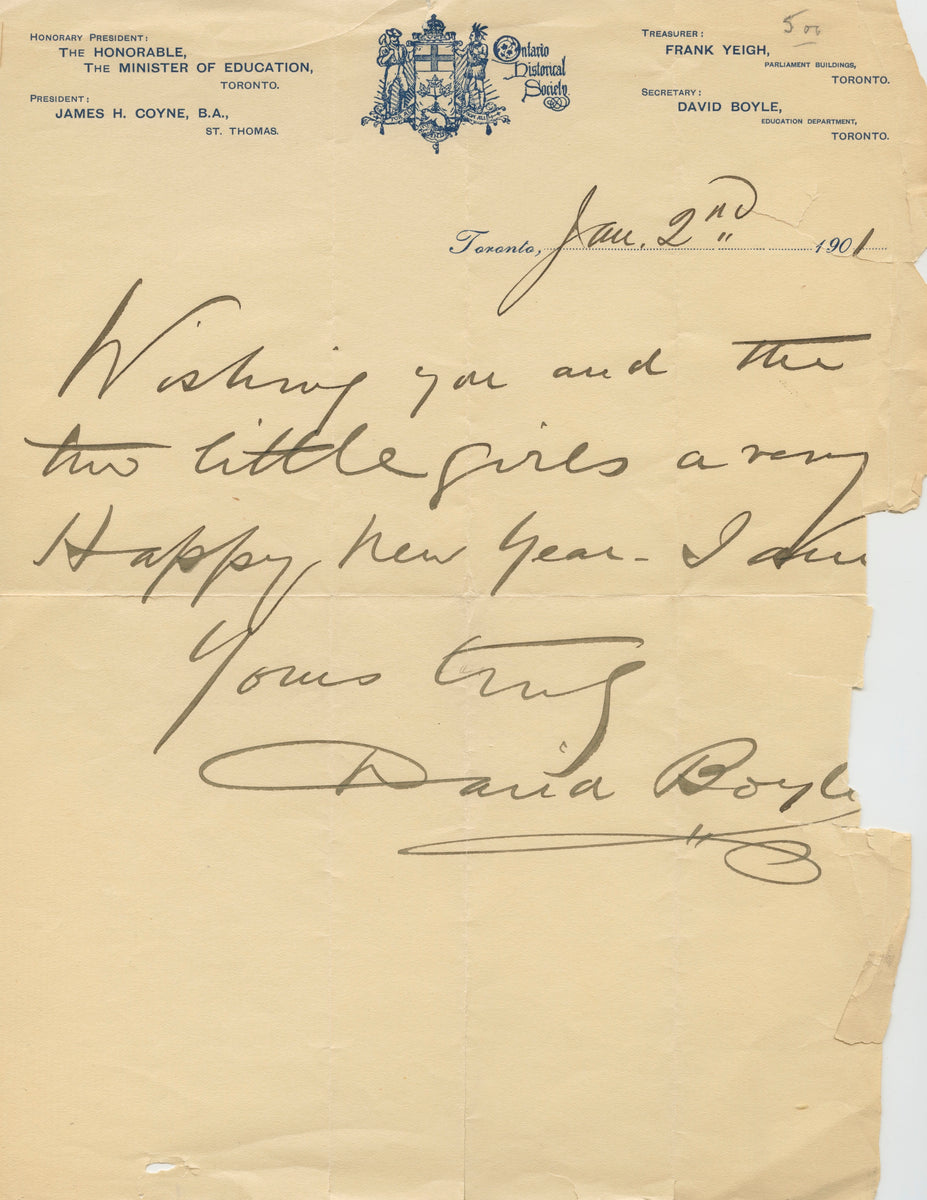 HONORARY PRESIDENT:
THE HONORABLE,
THE MINISTER OF EDUCATION,
TORONTO.
PRESIDENT:
JAMES H. COYNE, B.A.,
ST. THOMAS.
Ontario
Historical
Society
TREASURER:
FRANK YEIGH,
PARLIAMENT BUILDINGS,
TORONTO.
SECRETARY:
DAVID BOYLE,
EDUCATION DEPARTMENT,
TORONTO.
5 00
Toronto, Jan. 2nd 1901
Wishing you and the
two little girls a very
Happy New Year - I am
Yours truly
David Boyle